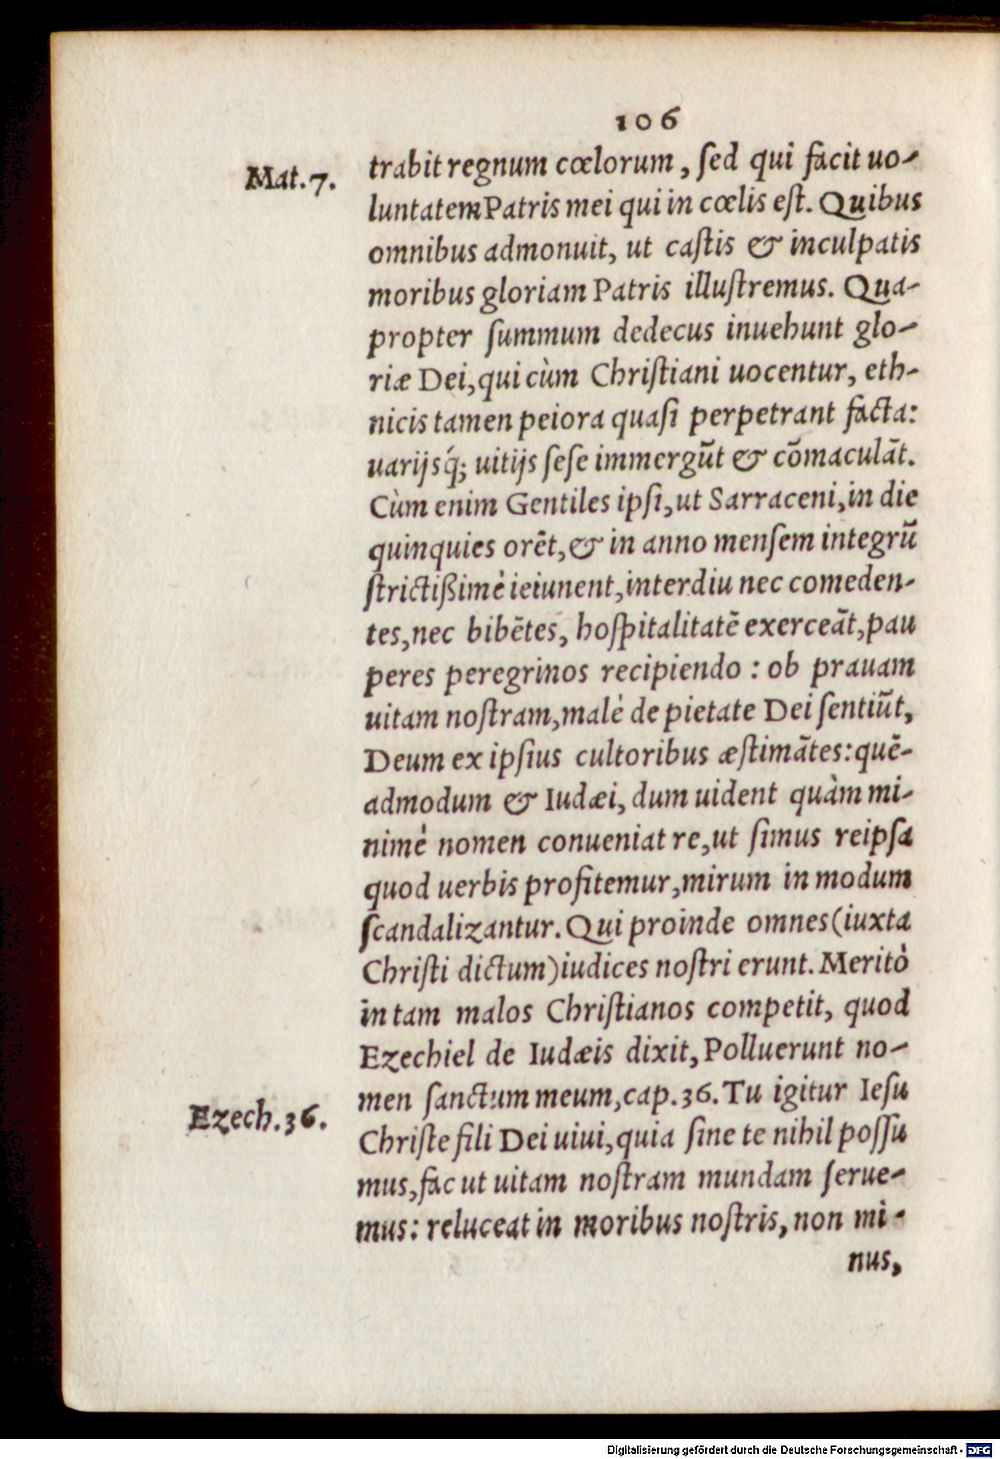 106
Mat.7.
trabit regnum cœlorum, ſed qui facit uo-
luntatem Patris mei qui in cœlis eſt. Quibus
omnibus admonuit, ut caſtis & inculpatis
moribus gloriam Patris illuſtremus. Qua-
propter ſummum dedecus inuehunt glo-
riæ Dei, qui cùm Chriſtiani uocentur, eth-
nicis tamen peiora quaſi perpetrant facta:
uarijsq́; uitijs ſeſe immergūt & cōmaculāt.
Cùm enim Gentiles ipſi, ut Sarraceni, in die
quinquies orēt, & in anno menſem integrū
ſtrictißimè ieiunent, interdiu nec comeden-
tes, nec bibētes, hoſpitalitatē exerceāt, pau
peres peregrinos recipiendo : ob prauam
uitam noſtram, malè de pietate Dei ſentiūt,
Deum ex ipſius cultoribus æſtimātes: quē-
admodum & Iudæi, dum uident quàm mi-
nimè nomen conueniat re, ut ſimus reipſa
quod uerbis profitemur, mirum in modum
ſcandalizantur. Qui proinde omnes (iuxta
Chriſti dictum) iudices noſtri erunt. Meritò
in tam malos Chriſtianos competit, quod
Ezechiel de Iudæis dixit, Polluerunt no-
men ſanctum meum, cap.36. Tu igitur Ieſu
Ezech.36.
Chriſte fili Dei uiui, quia ſine te nihil poſſu
mus, fac ut uitam noſtram mundam ſerue-
mus: reluceat in moribus noſtris, non mi-
nus,
Digitalisierung gefördert durch die Deutsche Forschungsgemeinschaft - DFG